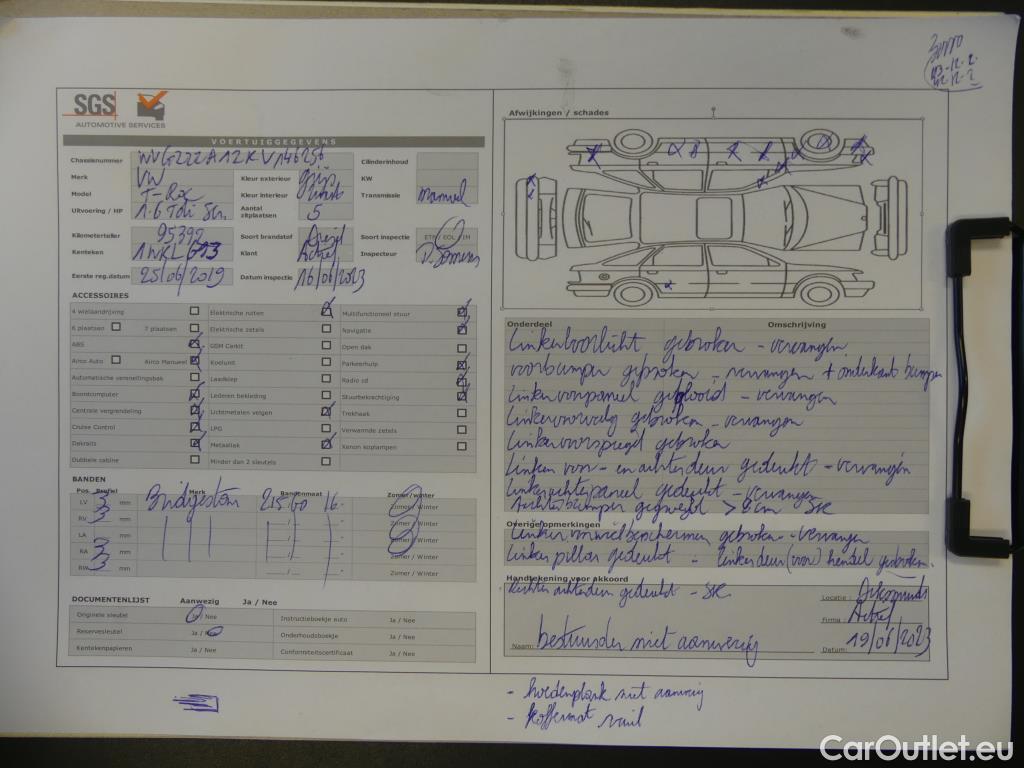 SGS
AUTOMOTIVE SERVICES
VOERTUIGGEGEVENS
Chassisnummer WVGZZZA1ZKV146256 Cilderinhoud
Merk VW Kleur exterieur grijs KW
Model T-Roc Kleur interieur Transmissie Manuel
Uitvoering / HP 1.6 Tdi Aantal zitplaatsen 5
Kilometerteller 95392 Soort brandstof Diesel Soort inspectie
Kenteken 1WKL Klant Inspecteur
Eerste reg.datum 25/06/2019 Datum inspectie 16/06/2023
ACCESSOIRES
4 wielaandrijving Elektrische ruiten Multifunctioneel stuur
6 plaatsen 7 plaatsen Elektrische zetels Navigatie
ABS GSM Carkit Open dak
Airco Auto Airco Manueel Koelunit Parkeerhulp
Automatische versnellingsbak Laadklep Radio cd
Boordcomputer Lederen bekleding Stuurbekrachtiging
Centrale vergrendeling Lichtmetalen velgen Trekhaak
Cruise Control LPG Verwarmde zetels
Dakrails Metaallak Xenon koplampen
Dubbele cabine Minder dan 2 sleutels
BANDEN
Pos. Profiel Merk Bandenmaat Zomer/winter
LV 3 mm Bridgestone 215/60 16 Zomer / Winter
RV 3 mm Zomer / Winter
LA mm Zomer / Winter
RA 3 mm Zomer / Winter
RW 3 mm Zomer / Winter
DOCUMENTENLIJST Aanwezig Ja / Nee
Originele sleutel Ja / Nee Instructieboekje auto Ja / Nee
Reservesleutel Ja / Nee Onderhoudsboekje Ja / Nee
Kentekenpapieren Ja / Nee Conformiteitscertificaat Ja / Nee
Afwijkingen / schades
Onderdeel Omschrijving
Linkervoorlicht gebroken - vervangen
voorbumper gebroken - vervangen + onderkant bumper
Linkervoorpaneel geplooid - vervangen
Linkervoorvelg gebroken - vervangen
Linkervoorspiegel gebroken
Linker voor- en achterdeur gedeukt - vervangen
Linkerachterpaneel gedeukt - vervangen
Achterbumper > 8cm SR
Overige opmerkingen
Linker voorwielbeschermer gebroken - vervangen
Linker pillar gedeukt - linkerdeur (voor) hendel gebroken
Handtekening voor akkoord
Rechter achterdeur gedeukt - SR
Locatie :
Firma :
Naam: bestuurder niet aanwezig Datum: 19/06/2023
- hoedenplank niet aanwezig
- koffermat vuil
CarOutlet.eu